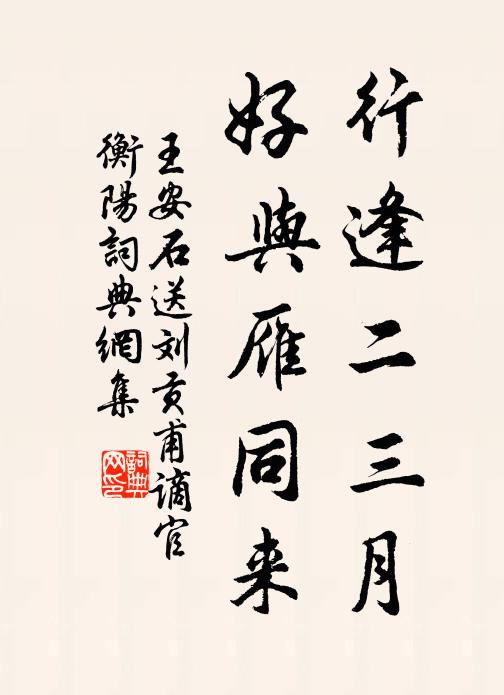 行逢二三月
好與雁同来
王安石送刘贡甫谪官
衡陽詞典網集
詞典网印